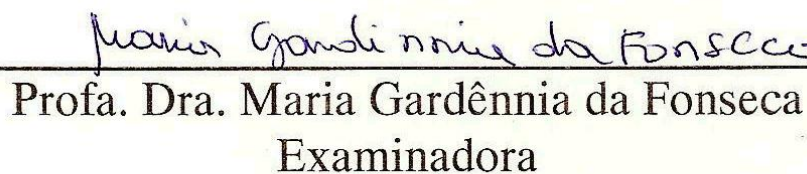 Maria Gardênnia da Fonseca
Profa. Dra. Maria Gardênnia da Fonseca
Examinadora